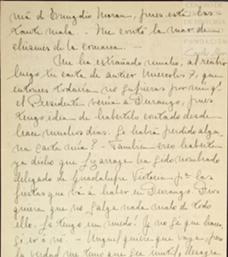 má d' Emigdio Moran, pues está bas
tante mala. - Me contó la mar de
chismes de la comarca. -
Me ha extrañado mucho, al recibir
luego tu carta de antier Miercoles 7, que
entonces todavía no supieras por mi q'
el Presidente venía a Durango, pues
tengo idea de habertelo contado desde
hace muchos dias. Se habrá perdido alguna
carta mía? - Tambien creo haberte
ya dicho que Lizarraga ha sido nombrado
delegado de Guadalupe Victoria pª las
fiestas que vá á haber en Durango. Dios
quiera que no salga nada malo de todo
ello. Le tengo un miedo! Yo no se que hacer,
si ir o no. - Miguel quiere que vaya, pero
la verdad me temo que sea inutil,